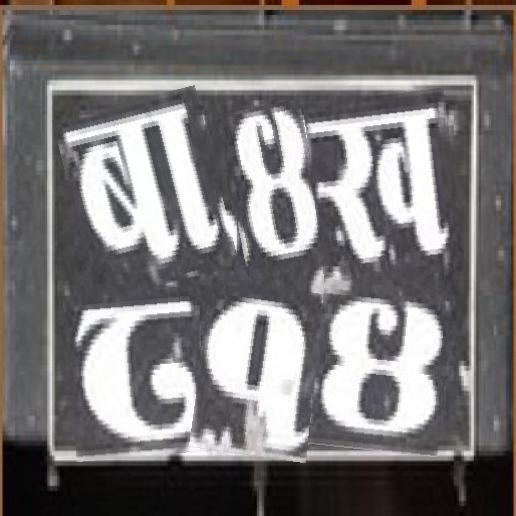 बा४ख
८१४